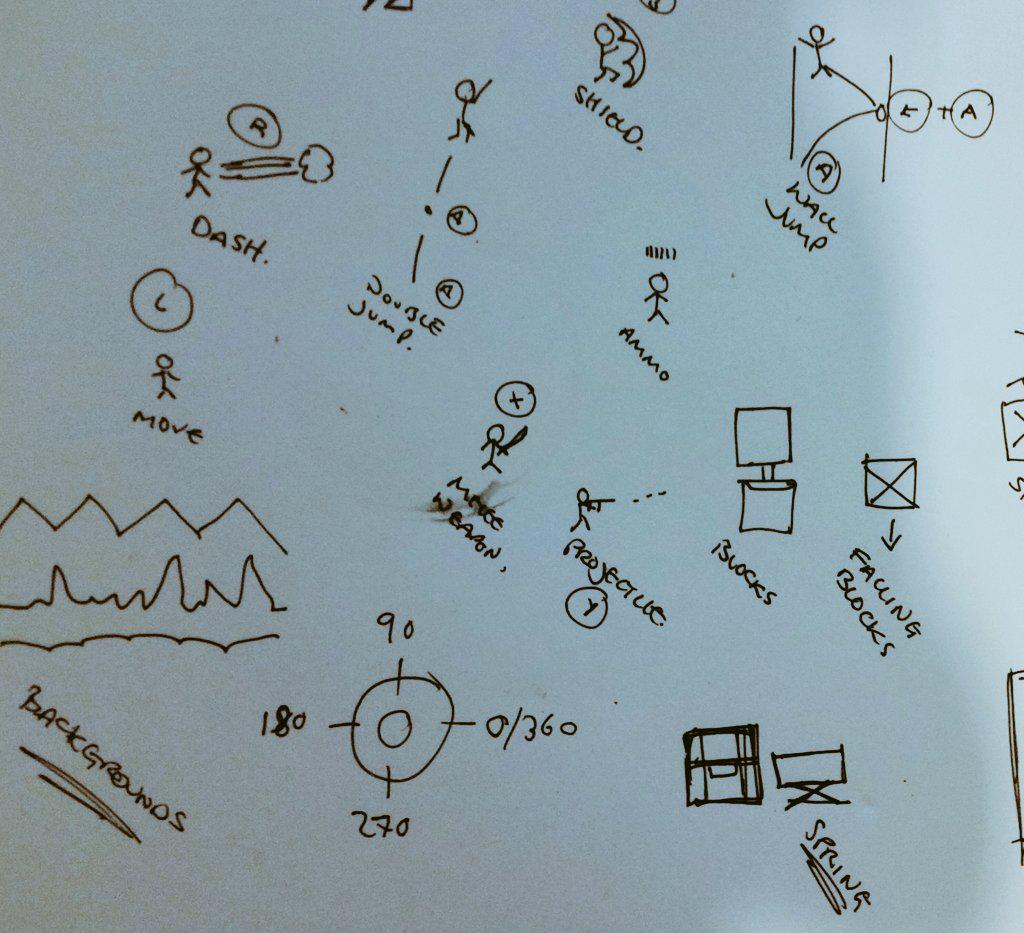 SHIELD.
R
DASH.
A
A
DOUBLE
JUMP.
+ A
A
WALL
JUMP
L
MOVE
AMMO
WEAPON,
PROJECTILE.
Y
BLOCKS
FALLING
BLOCKS
BACKGROUNDS
90
180
0/360
270
SPRING